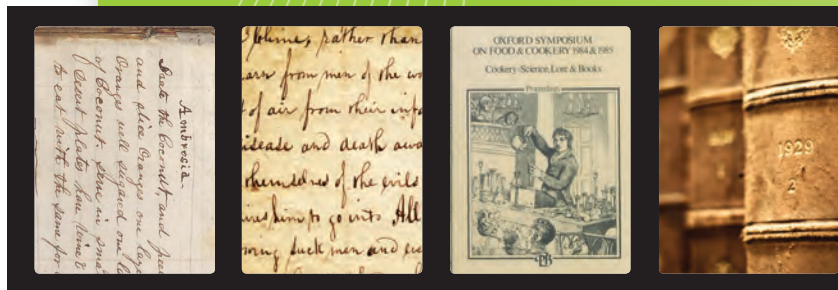 Ambrosia.
Grate the Cocoanut, and
and slice Oranges one
Oranges well sugared one
of Cocoanut. Serve in
Desert plates have Wine &
to eat with the same for
rather than
from men of the
of air from their
and death
themselves of the evils
him to go into All
such men and
OXFORD SYMPOSIUM
ON FOOD & COOKERY 1984 & 1985
Cookery: Science, Lore & Books
Proceedings
1929
2